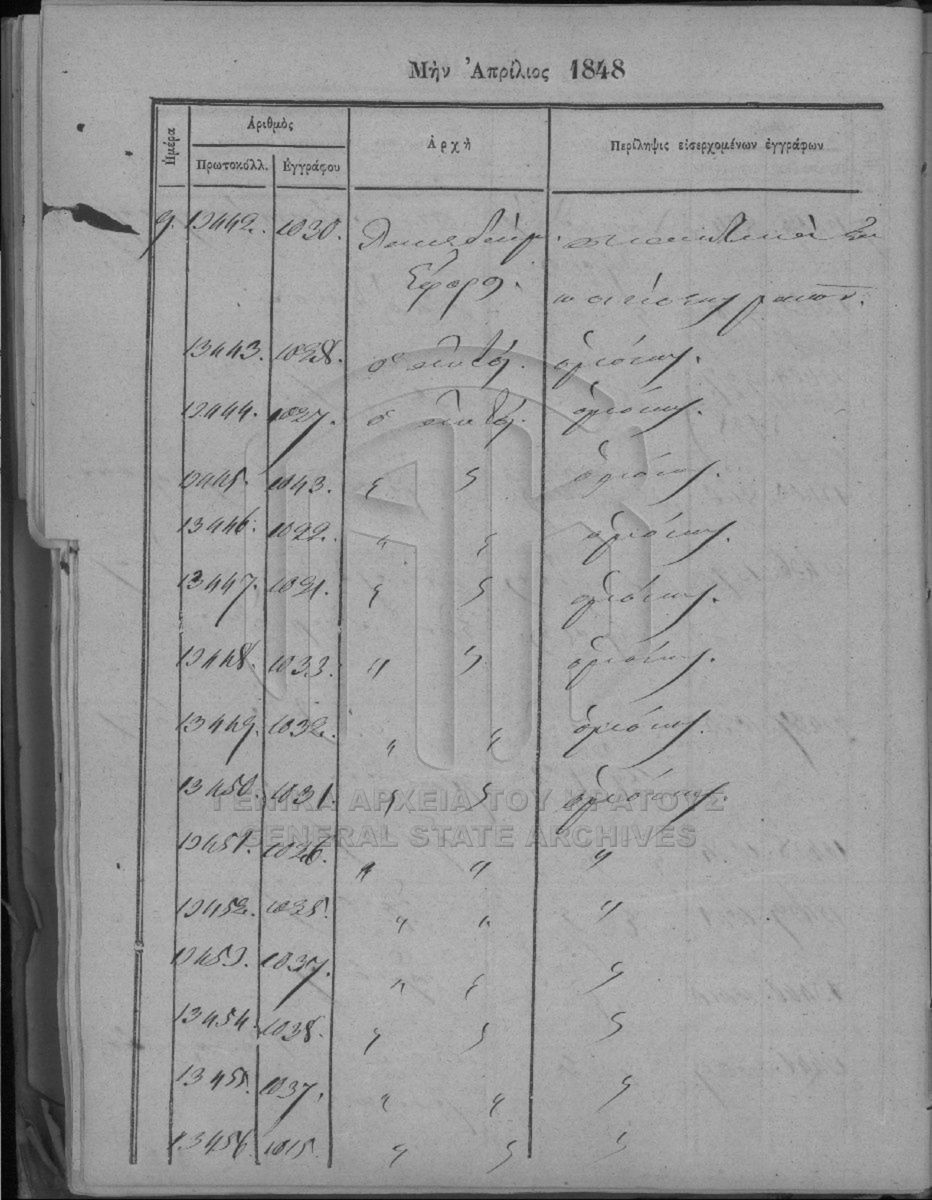 Μὴν Ἀπρίλιος 1848
Ἡμέρα
Ἀριθμὸς
Πρωτοκόλλ. Ἐγγράφου
Ἀρχὴ
Περίληψις εἰσερχομένων ἐγγράφων
9. 13442. 1030.
Ἔφορος.
13443. 1028. ὁ αὐτός. ὁμοίως.
13444. 1027. ὁ αὐτός. ὁμοίως.
13445. 1043. " " ὁμοίως.
13446. 1022. " " ὁμοίως.
13447. 1021. " " ὁμοίως.
13448. 1033. " " ὁμοίως.
13449. 1032. " " ὁμοίως.
13450. 1031. " " ὁμοίως.
ΓΕΝΙΚΑ ΑΡΧΕΙΑ ΤΟΥ ΚΡΑΤΟΥΣ
GENERAL STATE ARCHIVES
13451. 1026. " " "
13452. 1025. " " "
13453. 1037. " " "
13454. 1038. " " "
13455. 1037. " " "
13456. 1015. " " "